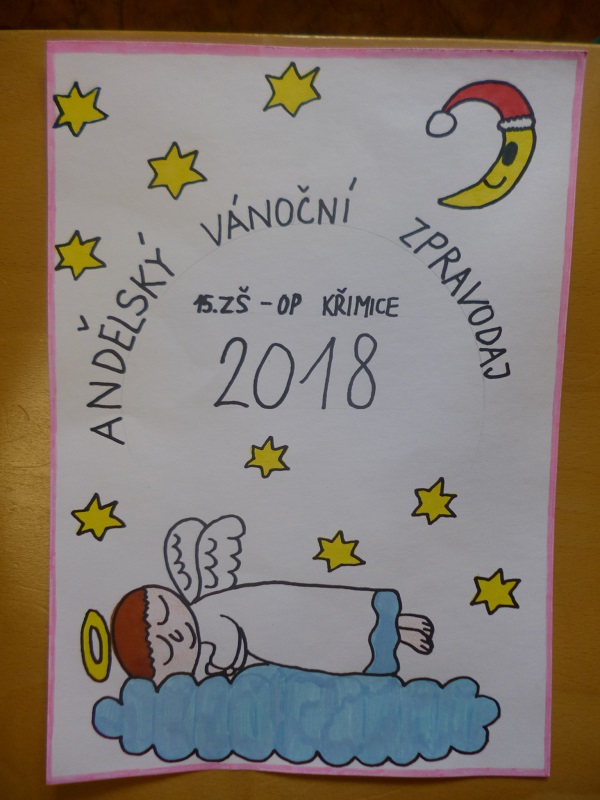 ANDĚLSKÝ VÁNOČNÍ ZPRAVODAJ
15.ZŠ - OP KŘIMICE
2018